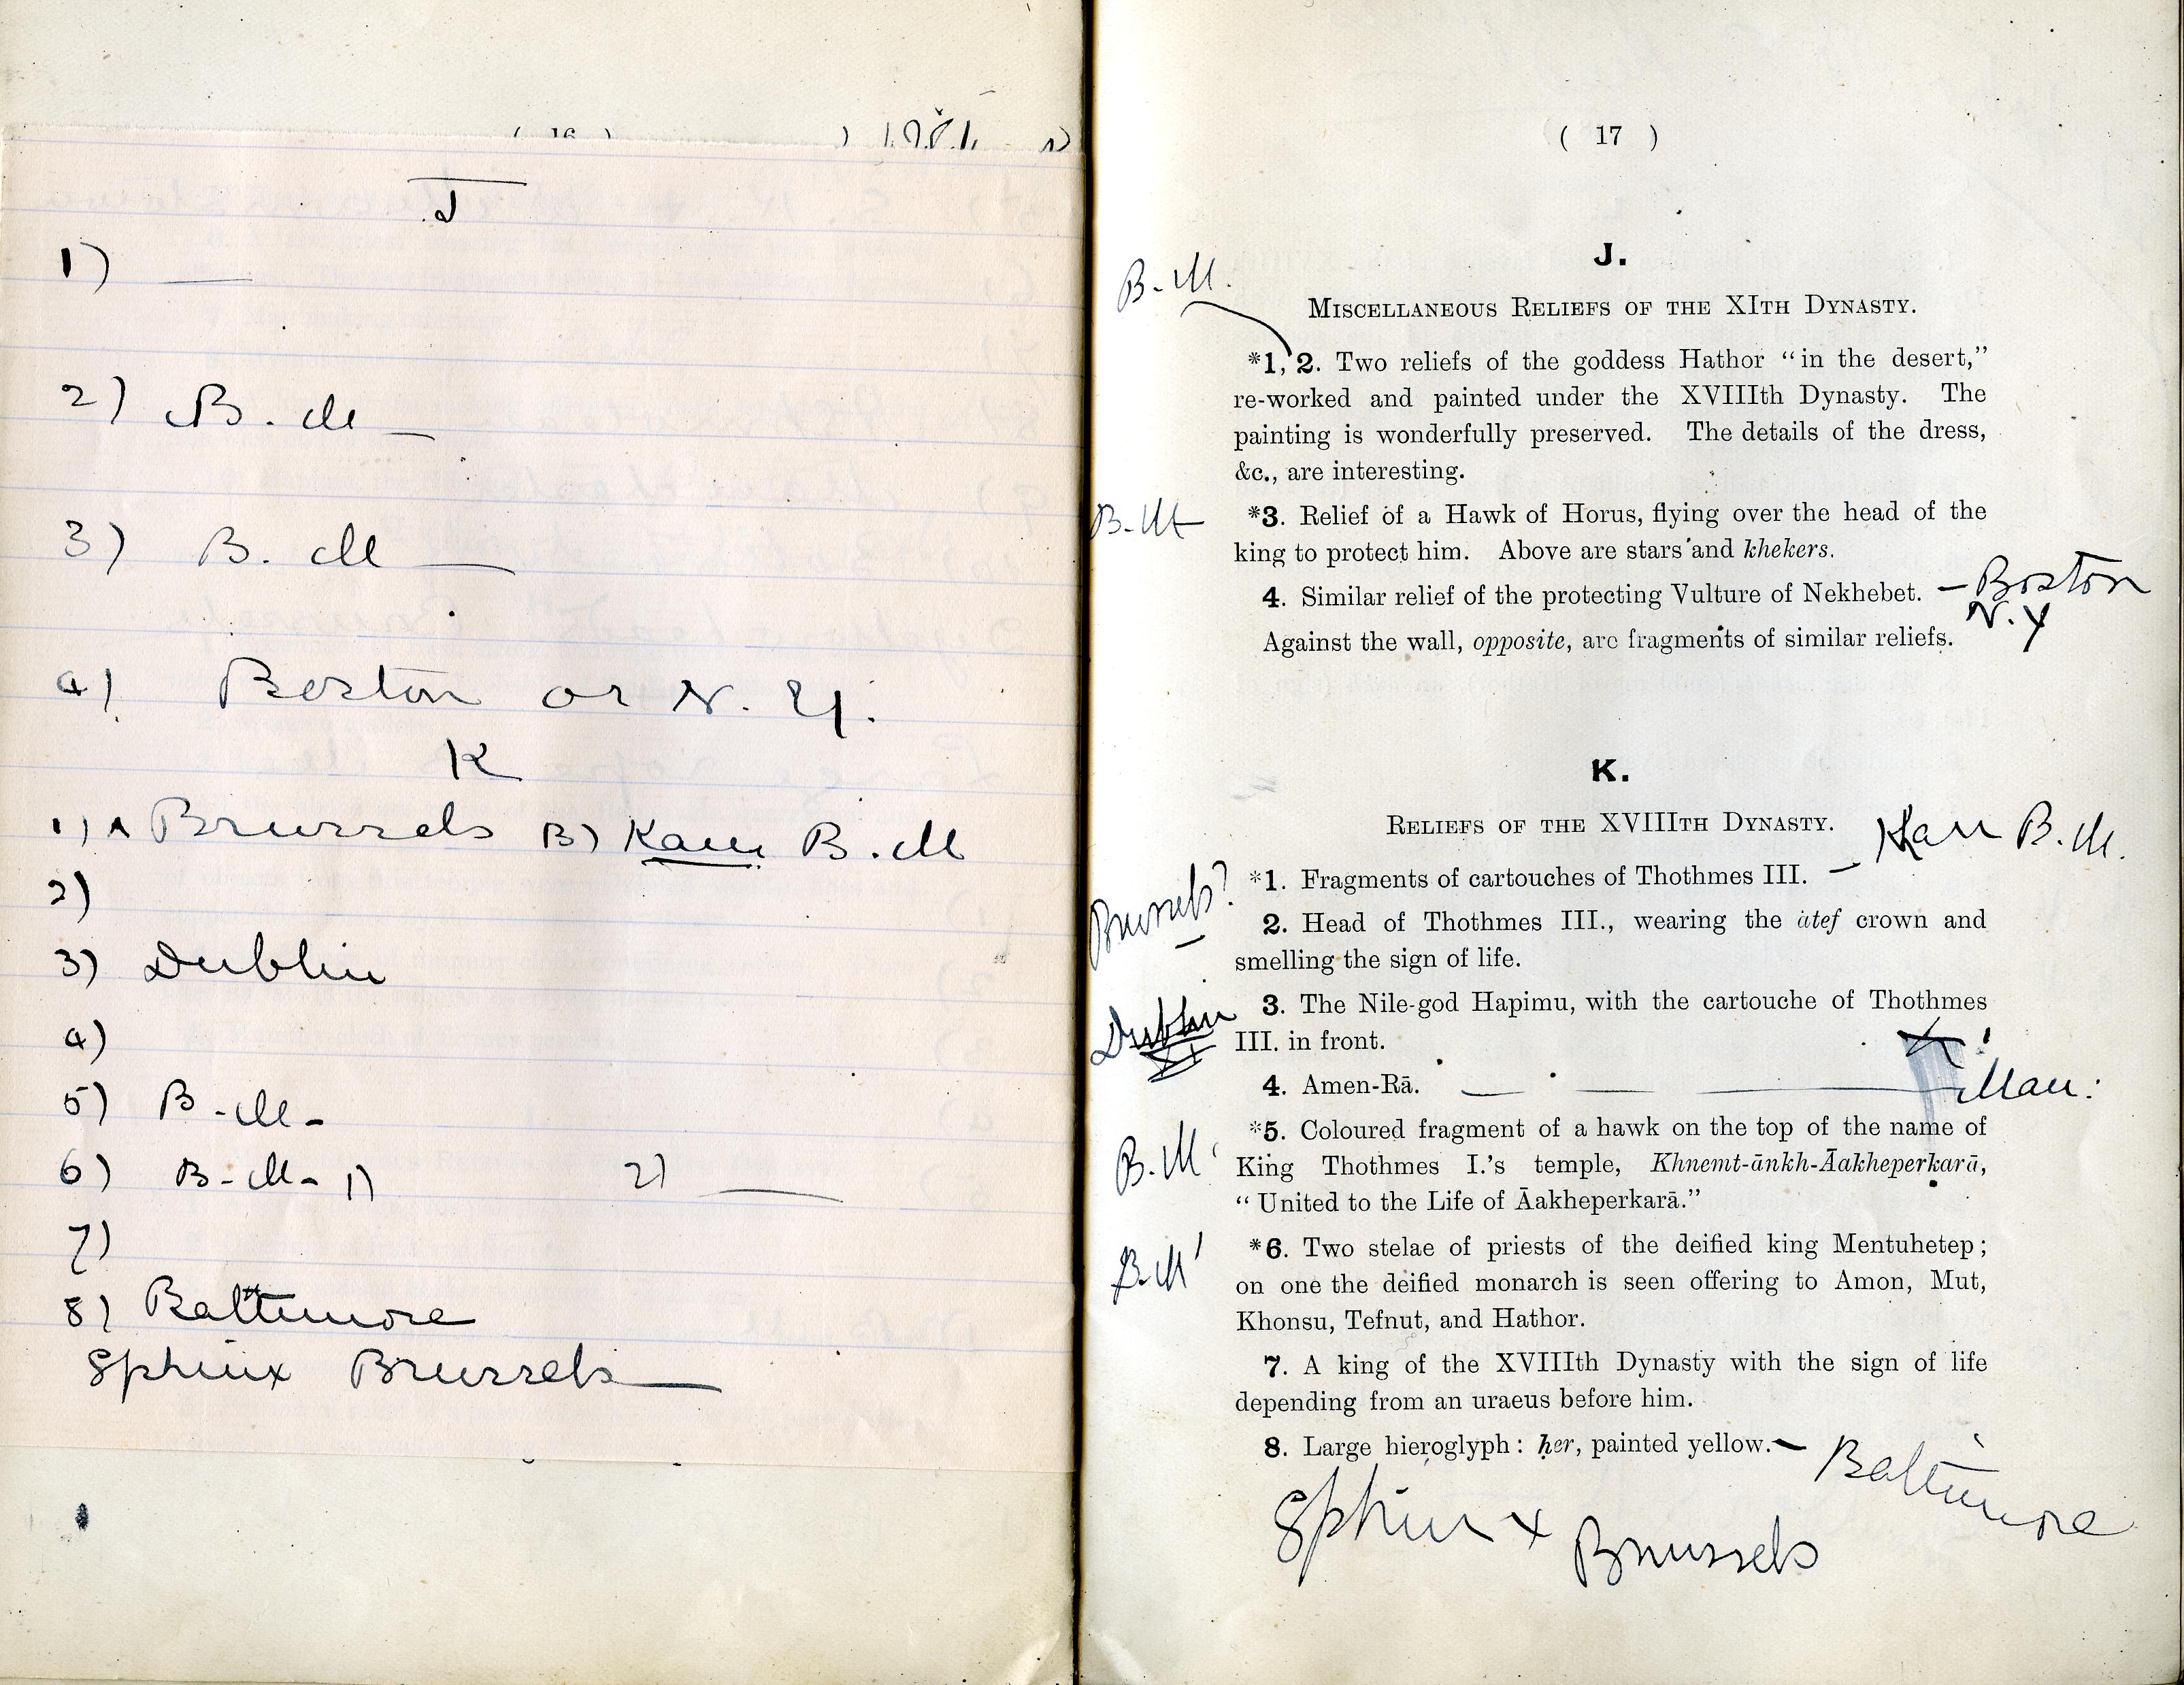 ( 16 )
J
1) —
2) B. M —
3) B. M —
4) Boston or N. Y.
K
1) A Brussels B) Karn B. M
2)
3) Dublin
4)
5) B. M.
6) B. M. 1) 2) —
7)
8) Baltimore
Sphinx Brussels —
( 17 )
J.
B. M.
MISCELLANEOUS RELIEFS OF THE XITH DYNASTY.
*1, 2. Two reliefs of the goddess Hathor “in the desert,”
re-worked and painted under the XVIIIth Dynasty. The
painting is wonderfully preserved. The details of the dress,
&c., are interesting.
B. M *3. Relief of a Hawk of Horus, flying over the head of the
king to protect him. Above are stars and khekers.
4. Similar relief of the protecting Vulture of Nekhebet. — Boston
N. Y
Against the wall, opposite, are fragments of similar reliefs.
K.
RELIEFS OF THE XVIIITH DYNASTY.
Karn B. M.
*1. Fragments of cartouches of Thothmes III. —
Brussels? 2. Head of Thothmes III., wearing the àtef crown and
smelling the sign of life.
Dublin 3. The Nile-god Hapimu, with the cartouche of Thothmes
III. in front.
4. Amen-Rā. — Man:
*5. Coloured fragment of a hawk on the top of the name of
B. M. King Thothmes I.'s temple, Khnemt-ānkh-Āakheperkarā,
“United to the Life of Āakheperkarā.”
B. M *6. Two stelae of priests of the deified king Mentuhetep;
on one the deified monarch is seen offering to Amon, Mut,
Khonsu, Tefnut, and Hathor.
7. A king of the XVIIIth Dynasty with the sign of life
depending from an uraeus before him.
8. Large hieroglyph: ḥer, painted yellow. — Baltimore
Sphinx Brussels